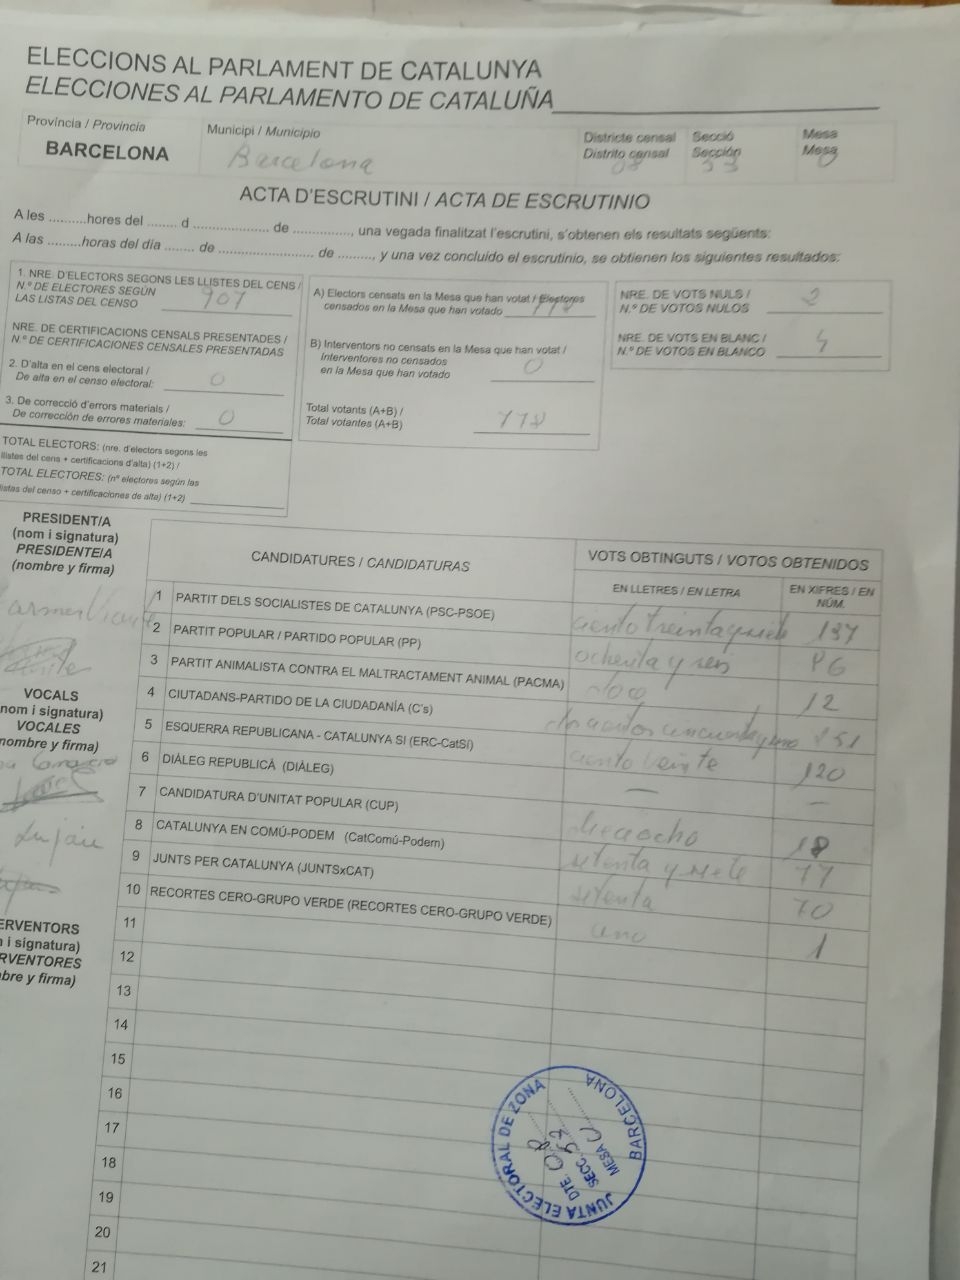 ELECCIONS AL PARLAMENT DE CATALUNYA
ELECCIONES AL PARLAMENTO DE CATALUÑA
Província / Provincia
BARCELONA
Municipi / Municipio
Barcelona
Districte censal
Distrito censal
08
Secció
Sección
53
Mesa
Mesa
U
ACTA D'ESCRUTINI / ACTA DE ESCRUTINIO
A les ..........hores del ........ d .................... de ..............., una vegada finalitzat l'escrutini, s'obtenen els resultats següents:
A las .........horas del día ........ de ......................... de .........., y una vez concluido el escrutinio, se obtienen los siguientes resultados:
1. NRE. D'ELECTORS SEGONS LES LLISTES DEL CENS /
N.º DE ELECTORES SEGÚN
LAS LISTAS DEL CENSO
907
NRE. DE CERTIFICACIONS CENSALS PRESENTADES /
N.º DE CERTIFICACIONES CENSALES PRESENTADAS
2. D'alta en el cens electoral /
De alta en el censo electoral: 0
3. De correcció d'errors materials /
De corrección de errores materiales: 0
TOTAL ELECTORS: (nre. d'electors segons les
llistes del cens + certificacions d'alta) (1+2) /
TOTAL ELECTORES: (nº electores según las
listas del censo + certificaciones de alta) (1+2)
A) Electors censats en la Mesa que han votat / Electores
censados en la Mesa que han votado 778
B) Interventors no censats en la Mesa que han votat /
Interventores no censados
en la Mesa que han votado 0
Total votants (A+B) /
Total votantes (A+B) 778
NRE. DE VOTS NULS /
N.º DE VOTOS NULOS 2
NRE. DE VOTS EN BLANC /
N.º DE VOTOS EN BLANCO 4
PRESIDENT/A
(nom i signatura)
PRESIDENTE/A
(nombre y firma)
VOCALS
nom i signatura)
VOCALES
nombre y firma)
Luján
ERVENTORS
n i signatura)
RVENTORES
bre y firma)
CANDIDATURES / CANDIDATURAS
VOTS OBTINGUTS / VOTOS OBTENIDOS
EN LLETRES / EN LETRA
EN XIFRES / EN NÚM.
1 PARTIT DELS SOCIALISTES DE CATALUNYA (PSC-PSOE) ciento treinta y siete 137
2 PARTIT POPULAR / PARTIDO POPULAR (PP) ochenta y seis 86
3 PARTIT ANIMALISTA CONTRA EL MALTRACTAMENT ANIMAL (PACMA) doce 12
4 CIUTADANS-PARTIDO DE LA CIUDADANÍA (C's) doscientos cincuenta y uno 251
5 ESQUERRA REPUBLICANA - CATALUNYA SÍ (ERC-CatSí) ciento veinte 120
6 DIÀLEG REPUBLICÀ (DIÀLEG) — —
7 CANDIDATURA D'UNITAT POPULAR (CUP) dieciocho 18
8 CATALUNYA EN COMÚ-PODEM (CatComú-Podem) setenta y siete 77
9 JUNTS PER CATALUNYA (JUNTSxCAT) setenta 70
10 RECORTES CERO-GRUPO VERDE (RECORTES CERO-GRUPO VERDE) uno 1
11
12
13
14
15
16
17
18
19
20
21
JUNTA ELECTORAL DE ZONA
BARCELONA
DTE. 08
SECC. 53
MESA U